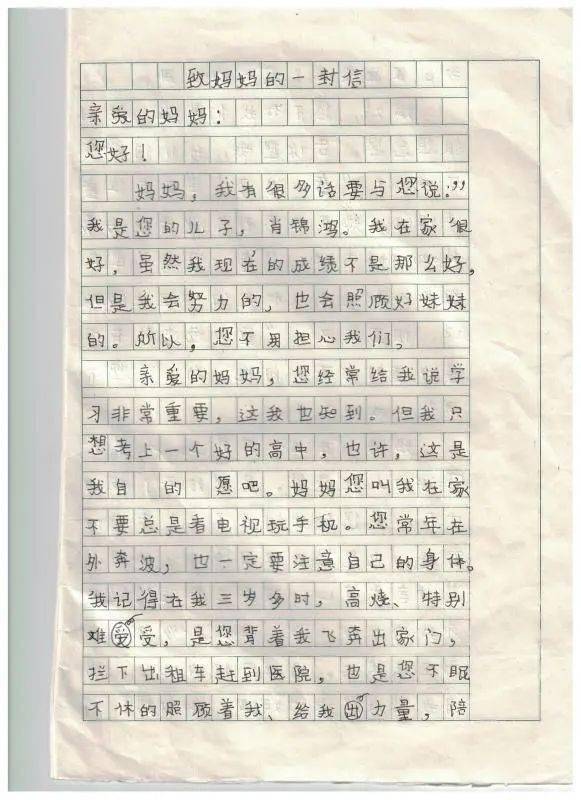 致妈妈的一封信
亲爱的妈妈：
您好！
妈妈，我有很多话要与您说：”
我是您的儿子，肖锦鸿。我在家很
好，虽然我现在的成绩不是那么好，
但是我会努力的，也会照顾好妹妹
的。所以，您不用担心我们。
亲爱的妈妈，您经常给我说学
习非常重要，这我也知到。但我只
想考上一个好的高中，也许，这是
我自 的 愿吧。妈妈您叫我在家
不要总是看电视玩手机。您常年在
外奔波，也一定要注意自己的身体。
我记得在我三岁多时，高烧、特别
难受，是您背着我飞奔出家门，
拦下出租车赶到医院，也是您不眠
不休的照顾着我、给我力量，陪